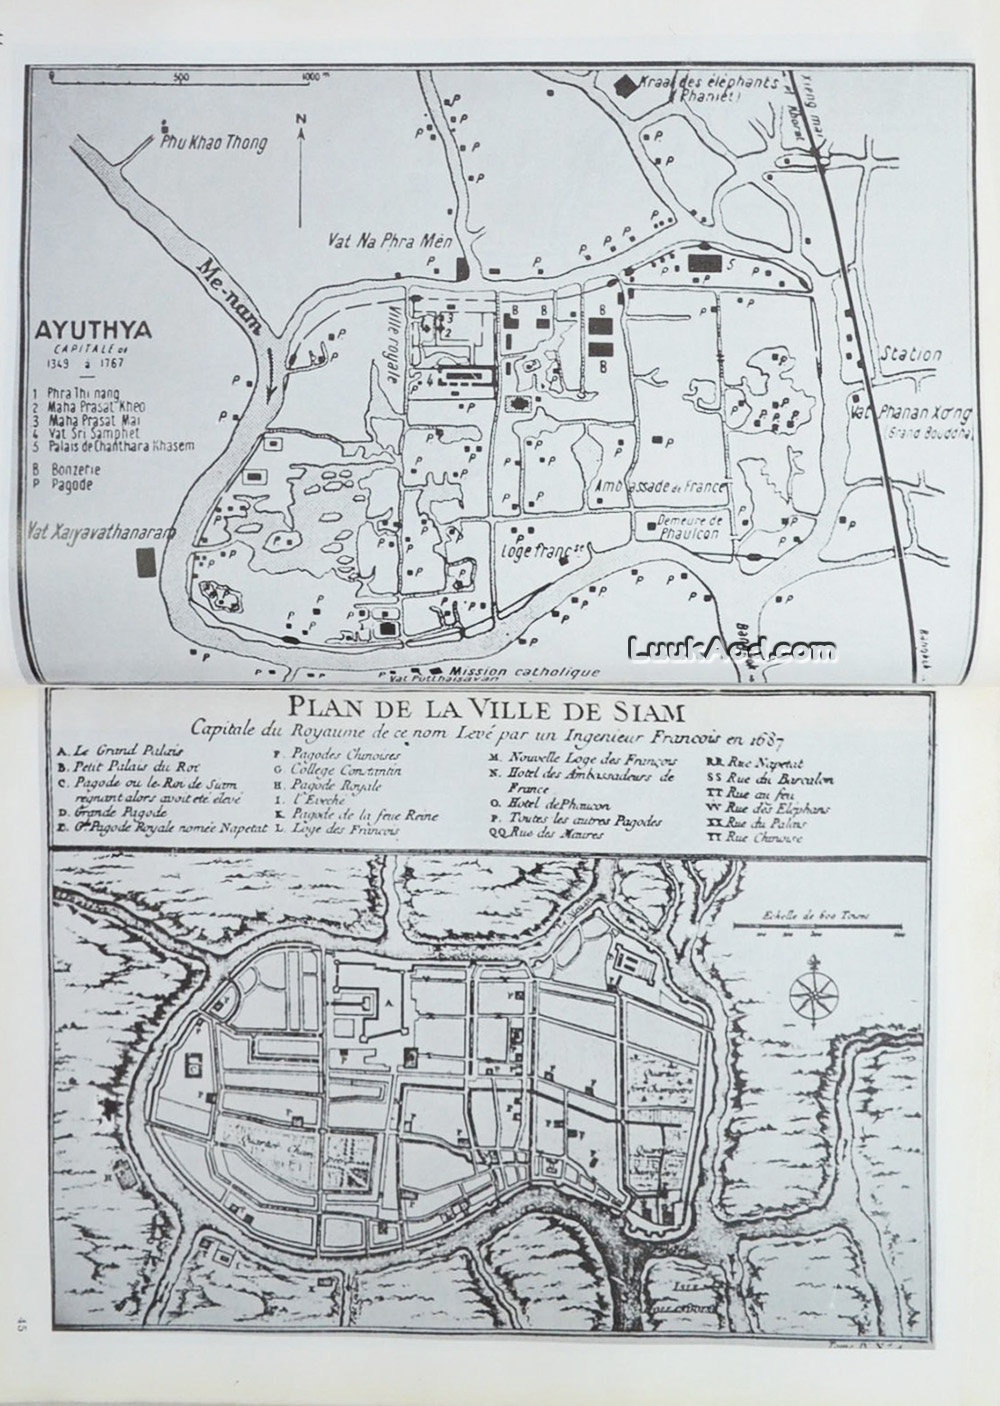 500
1000 m
Kraal des éléphants
(Phaniet)
Xieng mai
et Khorat
Phu Khao Thong
N
Vat Na Phra Mên
Me-nam
AYUTHYA
CAPITALE de
1349 à 1767
1 Phra Thi nang
2 Maha Prasat Kheo
3 Maha Prasat Mai
4 Vat Sri Samphet
5 Palais de Chanthara Khasem
B Bonzerie
P Pagode
Ville royale
Station
Vat Phanan Xơng
(Grand Bouddha)
Ambassade de France
Vat Xaiyavathanaram
Demeure de
Phaulcon
Loge franç se
LuukAod.com
Mission catholique
Vat Putthaisavan
PLAN DE LA VILLE DE SIAM
Capitale du Royaume de ce nom Levé par un Ingenieur Francois en 1687
A. Le Grand Palais
B. Petit Palais du Roi
C. Pagode ou le Roi de Siam
regnant alors avoit eté elevé
D. Grande Pagode
E. Gde Pagode Royale nomée Napetat
F. Pagodes Chinoises
G. College Constantin
H. Pagode Royale
I. l'Eveché
K. Pagode de la feue Reine
L. Loge des Francois
M. Nouvelle Loge des François
N. Hotel des Ambassadeurs de
France
O. Hotel de Phaucon
P. Toutes les autres Pagodes
QQ Rue des Maures
RR Rue Napetat
SS Rue du Barcalon
TT Rue au feu
VV Rue des Elephans
XX Rue du Palais
TT Rue Chinoise
Echelle de 600 Toises
45